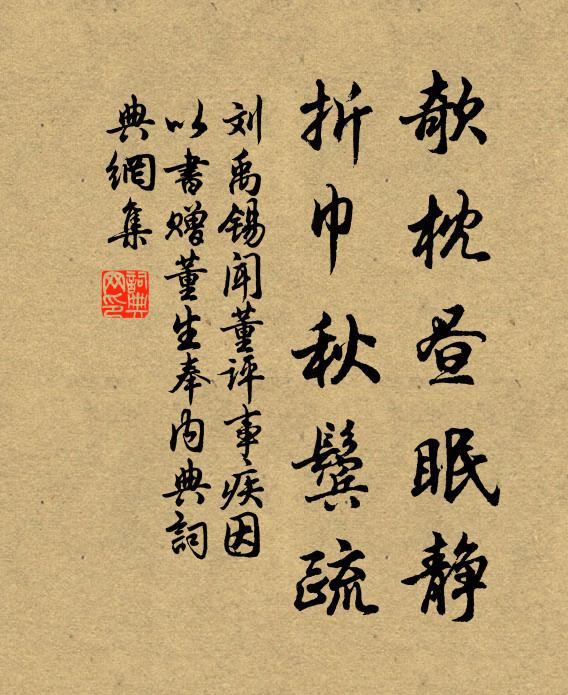 欹枕昼眠静
折巾秋鬢疏
刘禹锡闻董评事疾因
以書赠董生奉内典詞
典網集
詞典网印